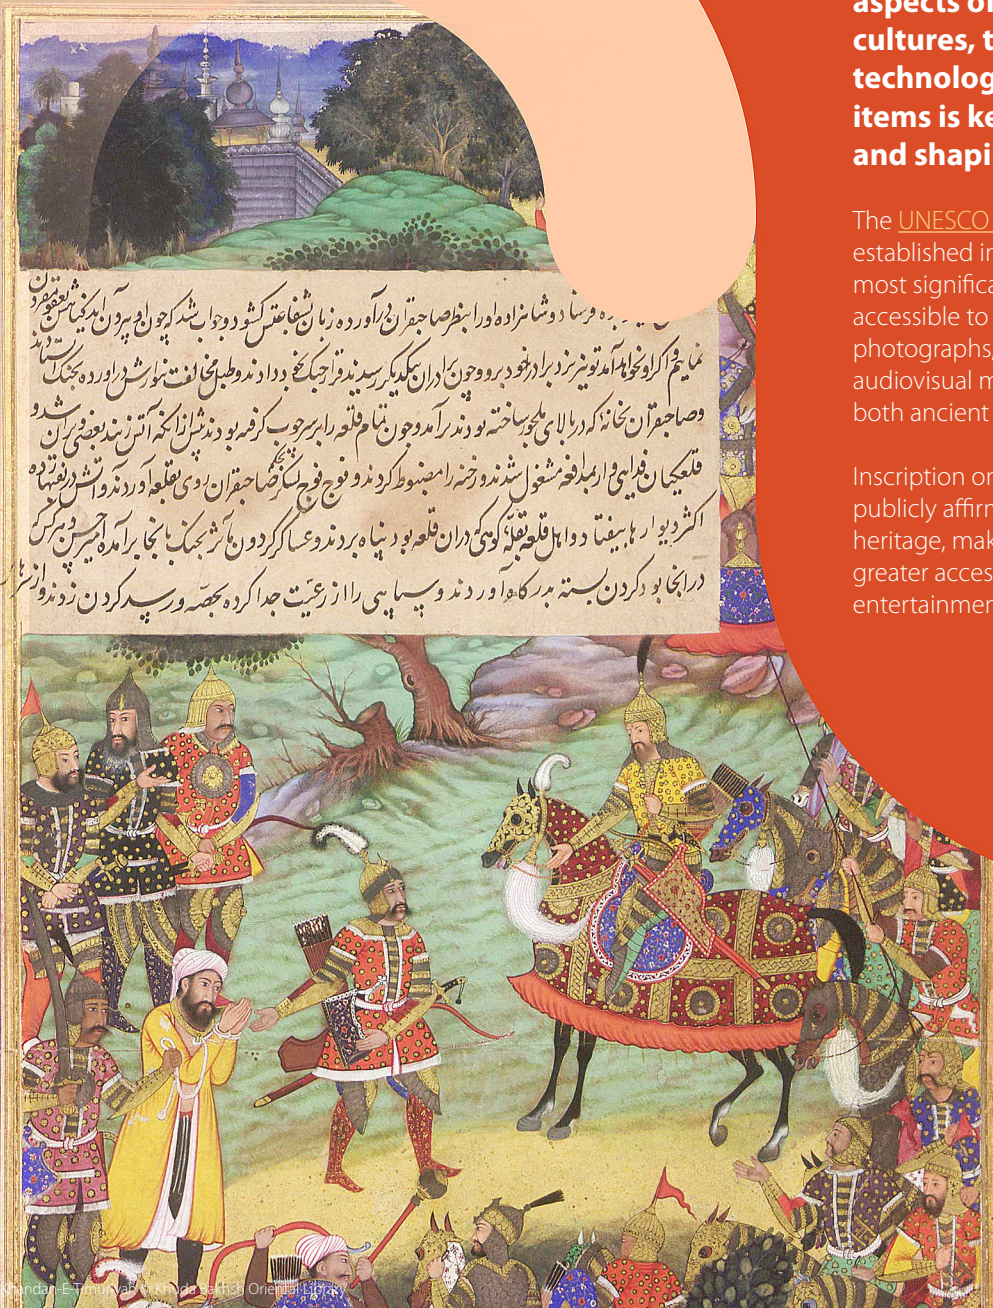 aspects of
cultures, t
technolog
items is ke
and shapi
The UNESCO
established in
most significa
accessible to
photographs,
audiovisual m
both ancient
Inscription on
publicly affirm
heritage, mak
greater access
entertainmen
دوشاهزاده اورا بنظر صاحبقران درآورده زبان بشفاعتش کشود و جواب شد که چون او بیرون
نمایم و اگر او نخواهد آمد تو نیز نزد برادر خود برو و چون برادران بیکدیگر رسیدند قرار جنک بخود دادند و طبل مخالفت
وصاحبقران نخانه که در بالای ملجور ساخته بودند برآمد و چون تمام قلعه را بر سر چوب کرفته بودند پیش از انکه آتش زنند بعضی
قلعکیان فدایی وار بمدافعه مشغول شدند و رخنه را مضبوط کردند و فوج فوج لشکر صاحبقران روی بقلعه آوردند و آتش
اکثر دیوارها بیفتاد و اهل قلعه بقله کوهی که در ان قلعه بود پناه بردند و عساکر کردون مآثر بجنک بانجا برآمده
در انجا بود کردن بسته بدرکاه آوردند و سپاهی را از رعیت جدا کرده بحصه ورسید کردن زدند و از
Khandan-E-Timuriyah © Khuda Bakhsh Oriental Library